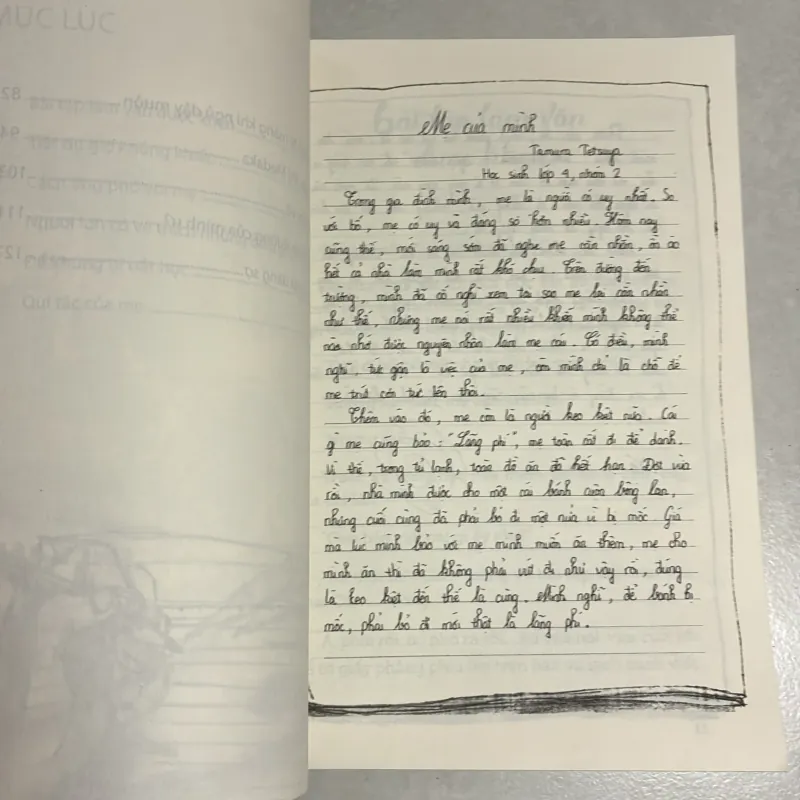 MỤC LỤC
82
94
103
111
127
Qui tắc của mẹ
Mẹ của mình
Tamura Tetsuya
Học sinh lớp 4, nhóm 2
Trong gia đình mình, mẹ là người có uy nhất. So
với bố, mẹ có uy và đáng sợ hơn nhiều. Hôm nay
cũng thế, mới sáng sớm đã nghe mẹ cằn nhằn, ồn ào
hết cả nhà làm mình rất khó chịu. Trên đường đến
trường, mình đã cố nghĩ xem tại sao mẹ lại cằn nhằn
như thế, nhưng mẹ nói rất nhiều khiến mình không thể
nào nhớ được nguyên nhân làm mẹ cáu. Có điều, mình
nghĩ, tức giận là việc của mẹ, còn mình chỉ là chỗ để
mẹ trút cơn tức lên thôi.
Thêm vào đó, mẹ còn là người keo kiệt nữa. Cái
gì mẹ cũng bảo: "Lãng phí", mẹ toàn cất đi để dành.
Vì thế, trong tủ lạnh, toàn đồ ăn đã hết hạn. Đợt vừa
rồi, nhà mình được cho một cái bánh cuộn bông lan,
nhưng cuối cùng đã phải bỏ đi một nửa vì bị mốc. Giá
mà lúc mình bảo với mẹ mình muốn ăn thêm, mẹ cho
mình ăn thì đã không phải vứt đi như vậy rồi, đúng
là keo kiệt đến thế là cùng. Mình nghĩ, để bánh bị
mốc, phải bỏ đi mới thật là lãng phí.